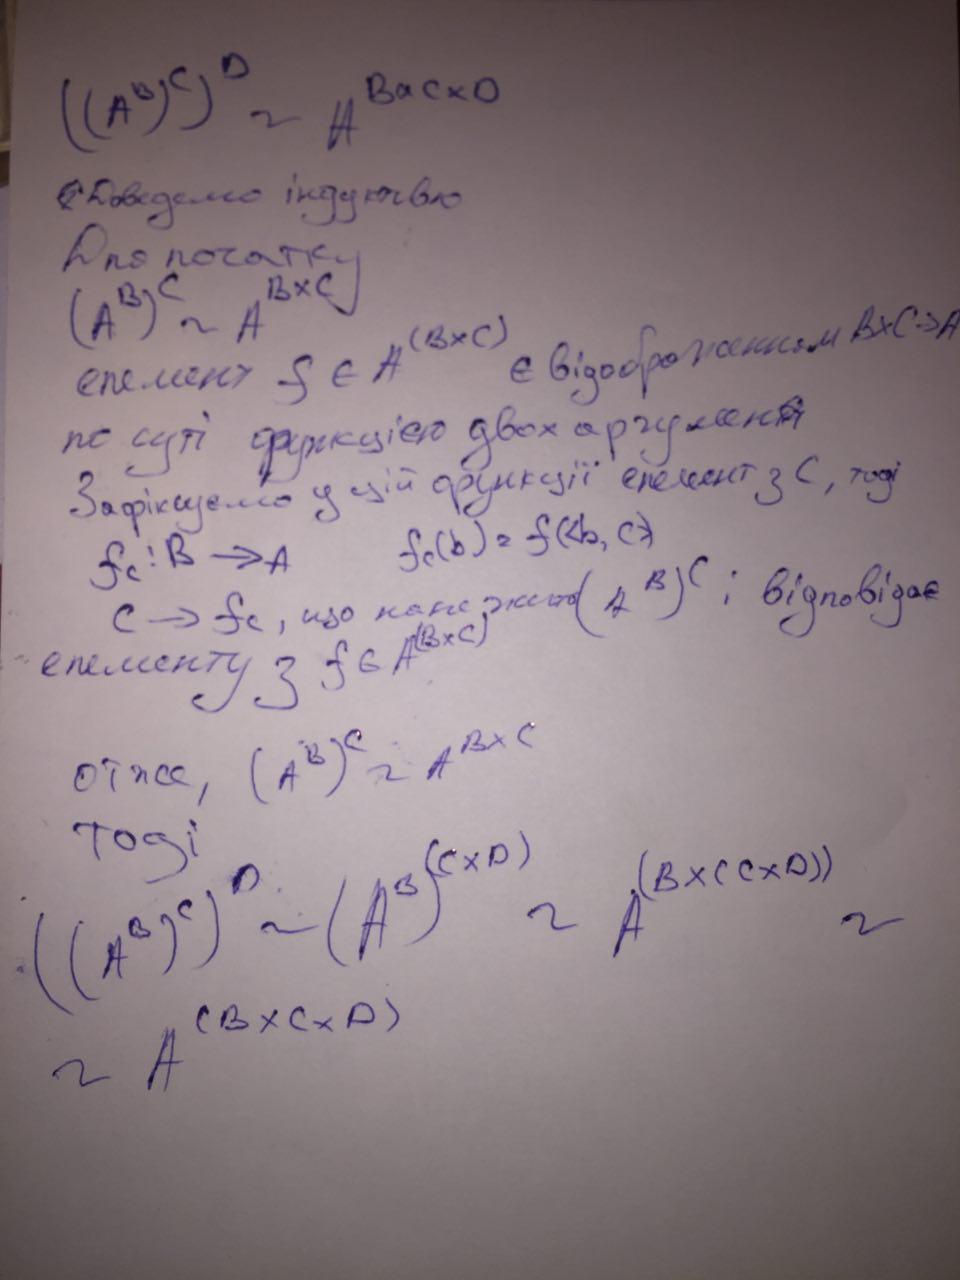 ((A^B)^C)^D ~ A^{B×C×D}
Доведемо індуктвно
Для початку
(A^B)^C ~ A^{B×C}
елемент f ∈ A^{(B×C)} є відображенням B×C→A
по суті функцією двох аргументів
Зафіксуємо у цій функції елемент з C, тоді
f_c : B → A f_c(b) = f(<b, c>)
C → f_c, що належить (A^B)^C і відповідає
елементу з f ∈ A^{(B×C)}
отже, (A^B)^C ~ A^{B×C}
тоді
((A^B)^C)^D ~ (A^B)^{(C×D)} ~ A^{(B×(C×D))} ~
~ A^{(B×C×D)}